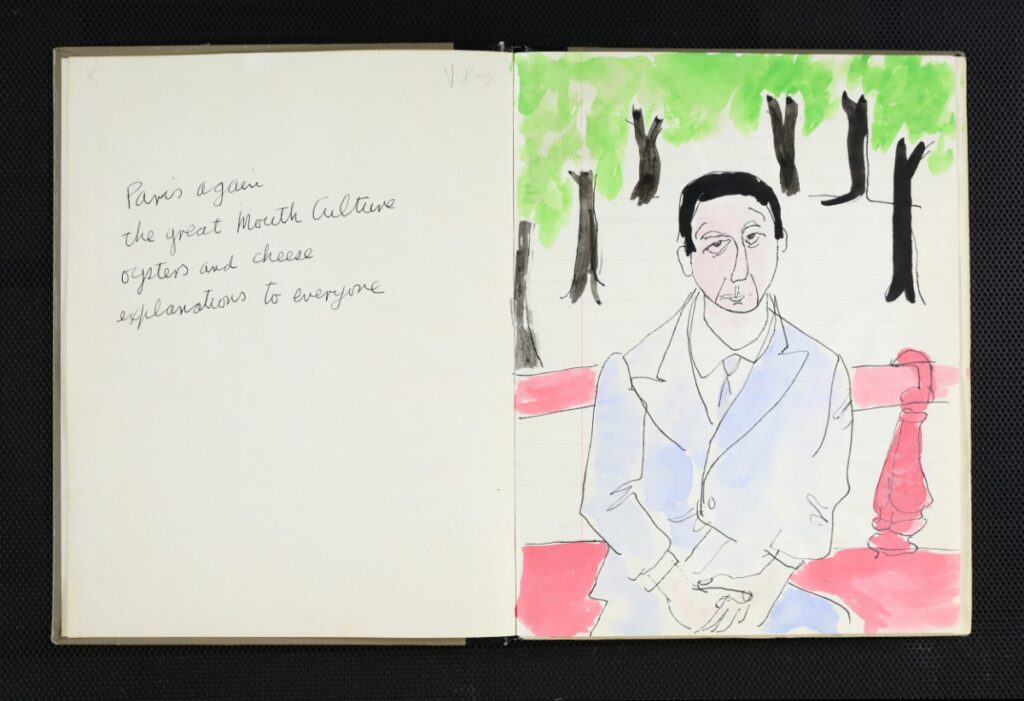 Paris again
the great Mouth Culture
oysters and cheese
explanations to everyone